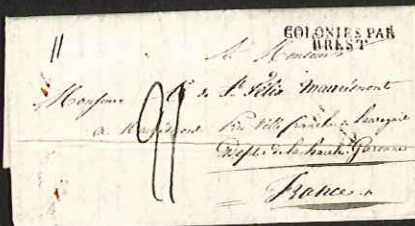 COLONIES PAR
BREST
11
A Monsieur
Monsieur de St Félix Mauremont
a Mauremont Près Ville franche de Lauragais
Dept de la haute Garonne
France